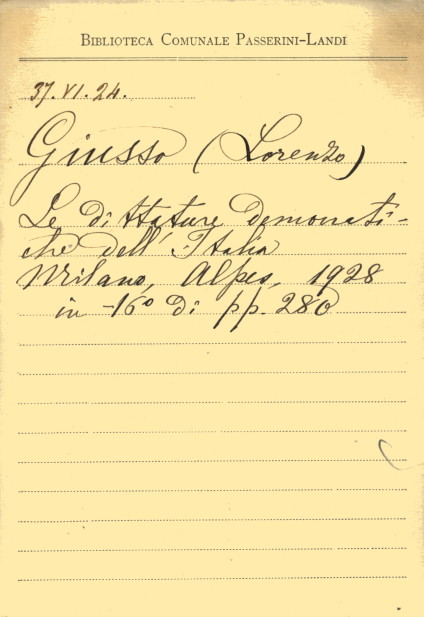 BIBLIOTECA COMUNALE PASSERINI-LANDI
37.VI.24.
Giusso (Lorenzo)
Le dittature democrati-
che dell'Italia
Milano, Alpes, 1928
in -16° di pp. 280